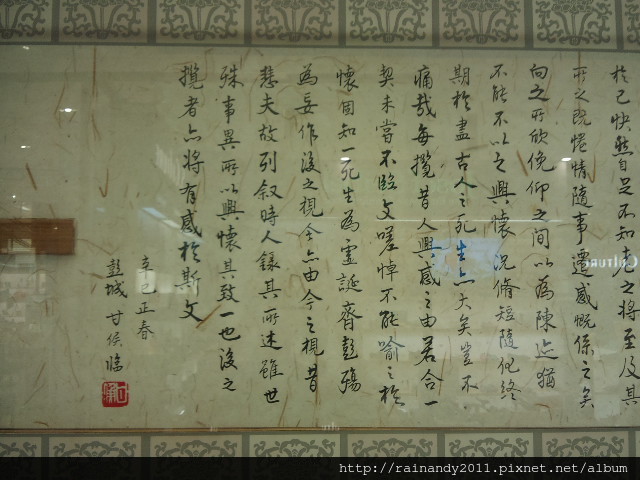 於己快然自足不知老之將至及其
所之既惓情隨事遷感慨係之矣
向之所欣俛仰之間以為陳迹猶
不能不以之興懷況脩短隨化終
期於盡古人云死生亦大矣豈不
痛哉每攬昔人興感之由若合一
契未嘗不臨文嗟悼不能喻之於
懷固知一死生為虛誕齊彭殤
為妄作後之視今亦由今之視昔
悲夫故列敘時人錄其所述雖世
殊事異所以興懷其致一也後之
攬者亦將有感於斯文
辛巳正春
彭城 甘侯臨
http://rainandy2011.pixnet.net/album